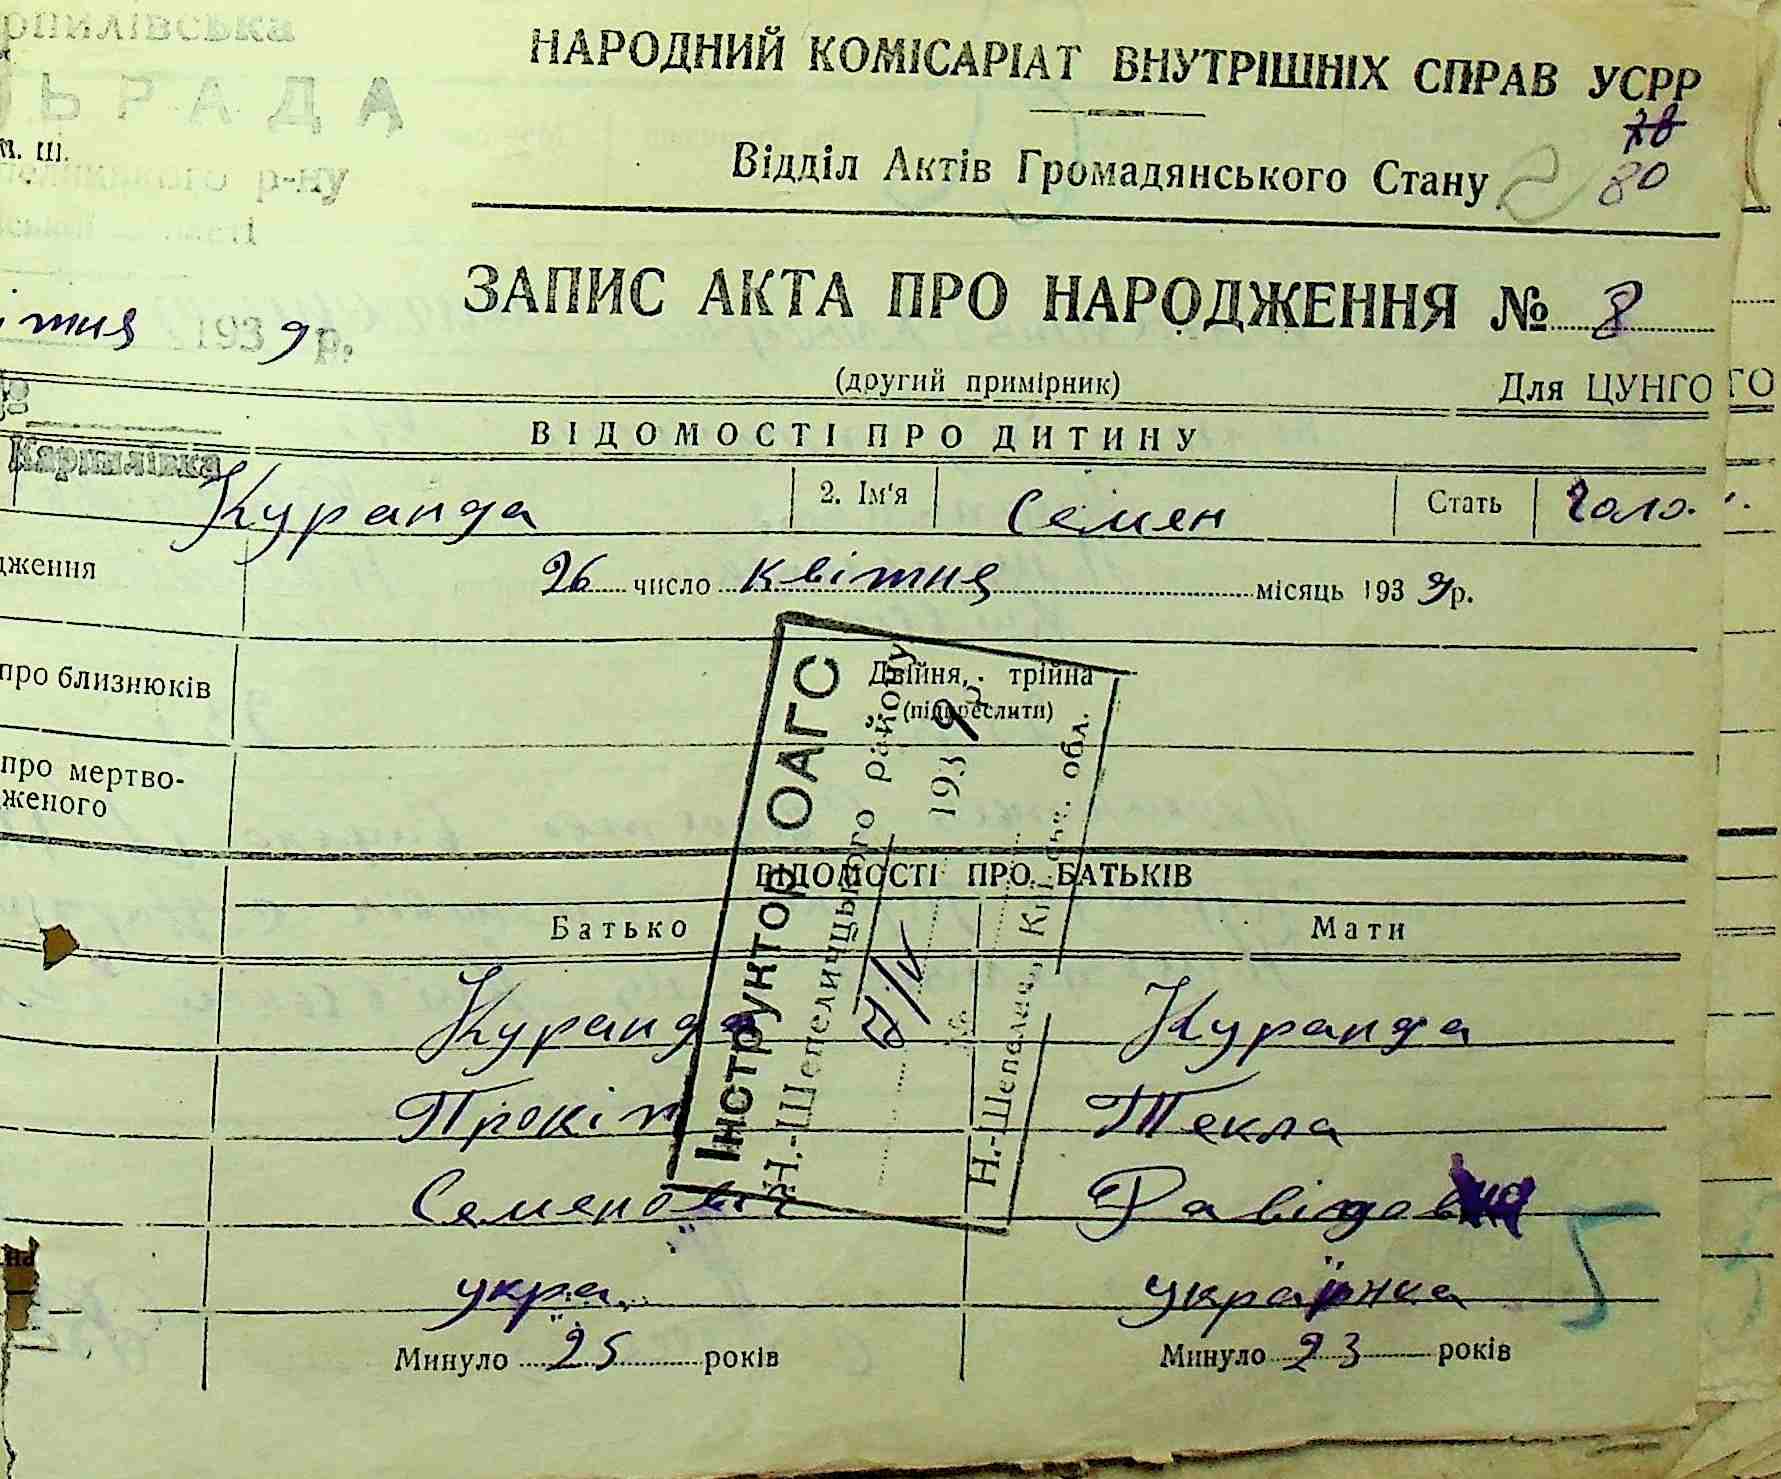 НАРОДНИЙ КОМІСАРІАТ ВНУТРІШНІХ СПРАВ УСРР
Відділ Актів Громадянського Стану
28
80
рпилівська
ЬРАДА
р-ну
ЗАПИС АКТА ПРО НАРОДЖЕННЯ № 8
ітня 1939 р.
(другий примірник) Для ЦУНГО
ГО
ВІДОМОСТІ ПРО ДИТИНУ
Карпилівка
Куранда 2. Ім'я Семен Стать Чоло.
дження 26 число квітня місяць 1939 р.
про близнюків Двійня, трійня
(підкреслити)
про мертво-
женого
Інструктор ОАГС
Н.-Шепелицького району
1939 р.
№
Н.-Шепеличі, Київськ. обл.
ВІДОМОСТІ ПРО БАТЬКІВ
Батько Мати
Куранда Куранда
Прокіп Текла
Семенович Давідовна
укра. українка
на
Минуло 25 років Минуло 23 років
5